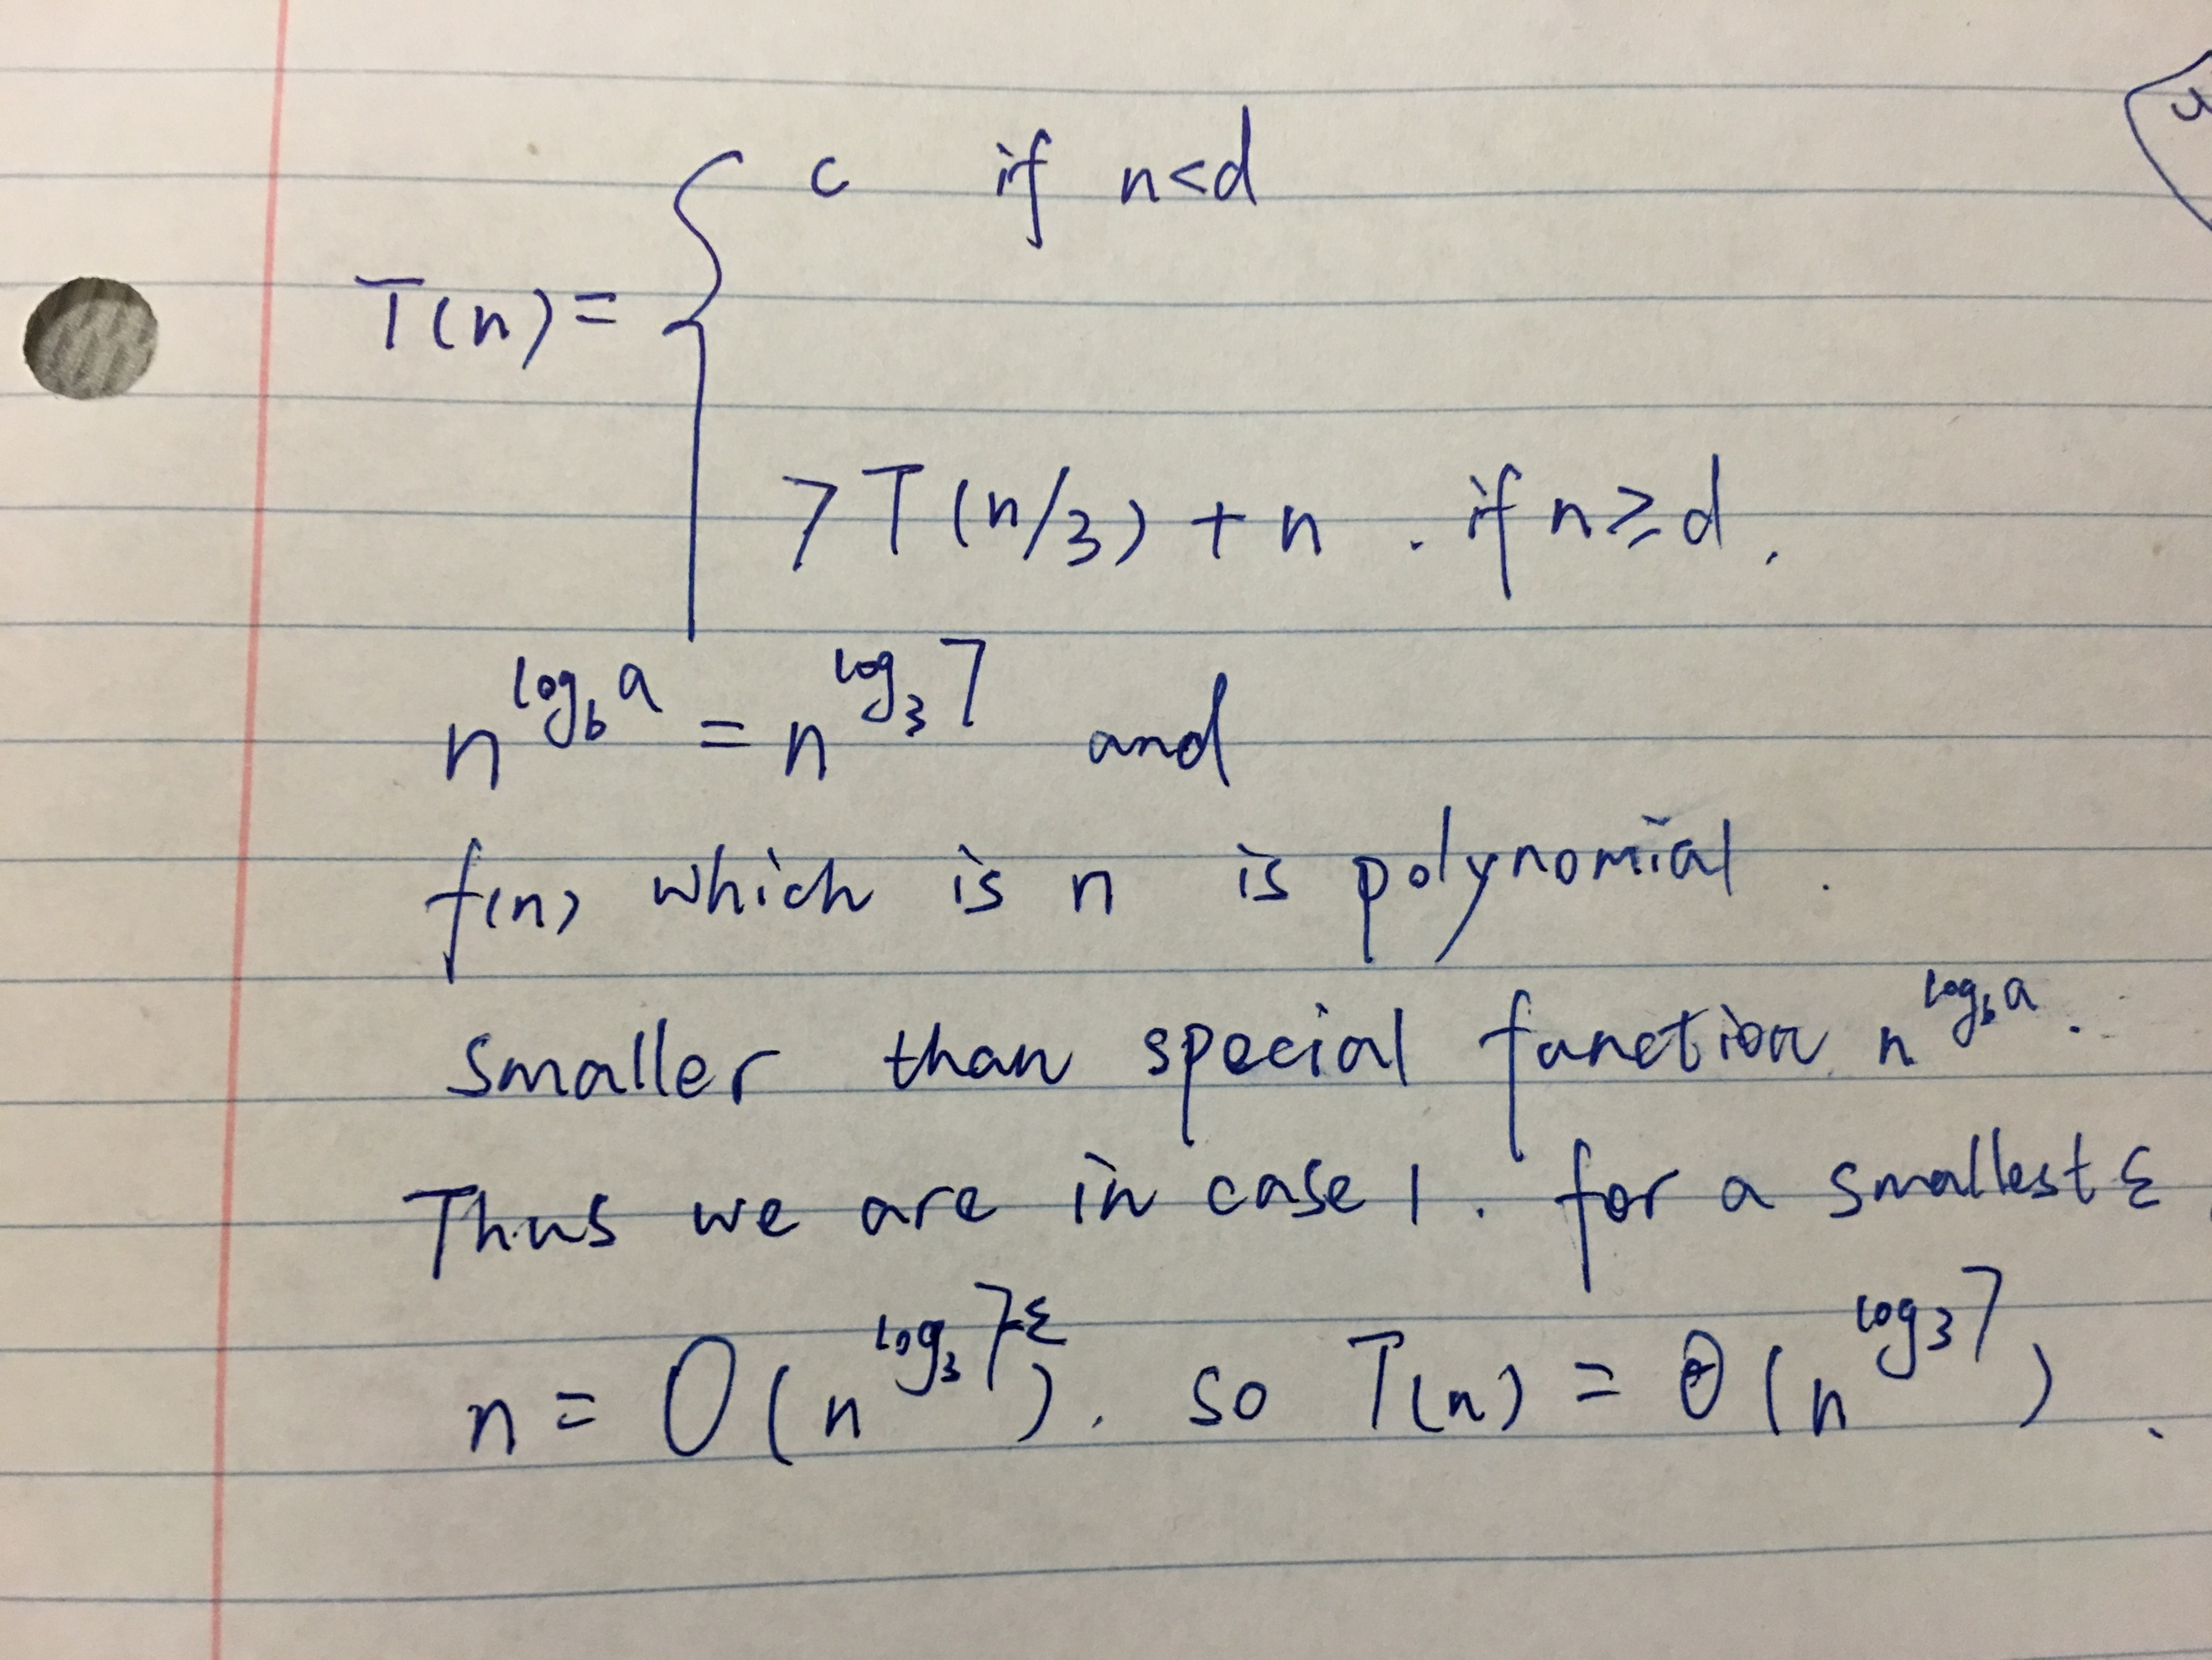 c if n<d
T(n) = {
7T(n/3) + n . if n ≥ d .
n^{log_b a} = n^{log_3 7} and
f(n) which is n is polynomial .
smaller than special function n^{log_b a} .
Thus we are in case 1 . for a smallest ε
n = O(n^{log_3 7-ε}) . so T(n) = Θ(n^{log_3 7}) .